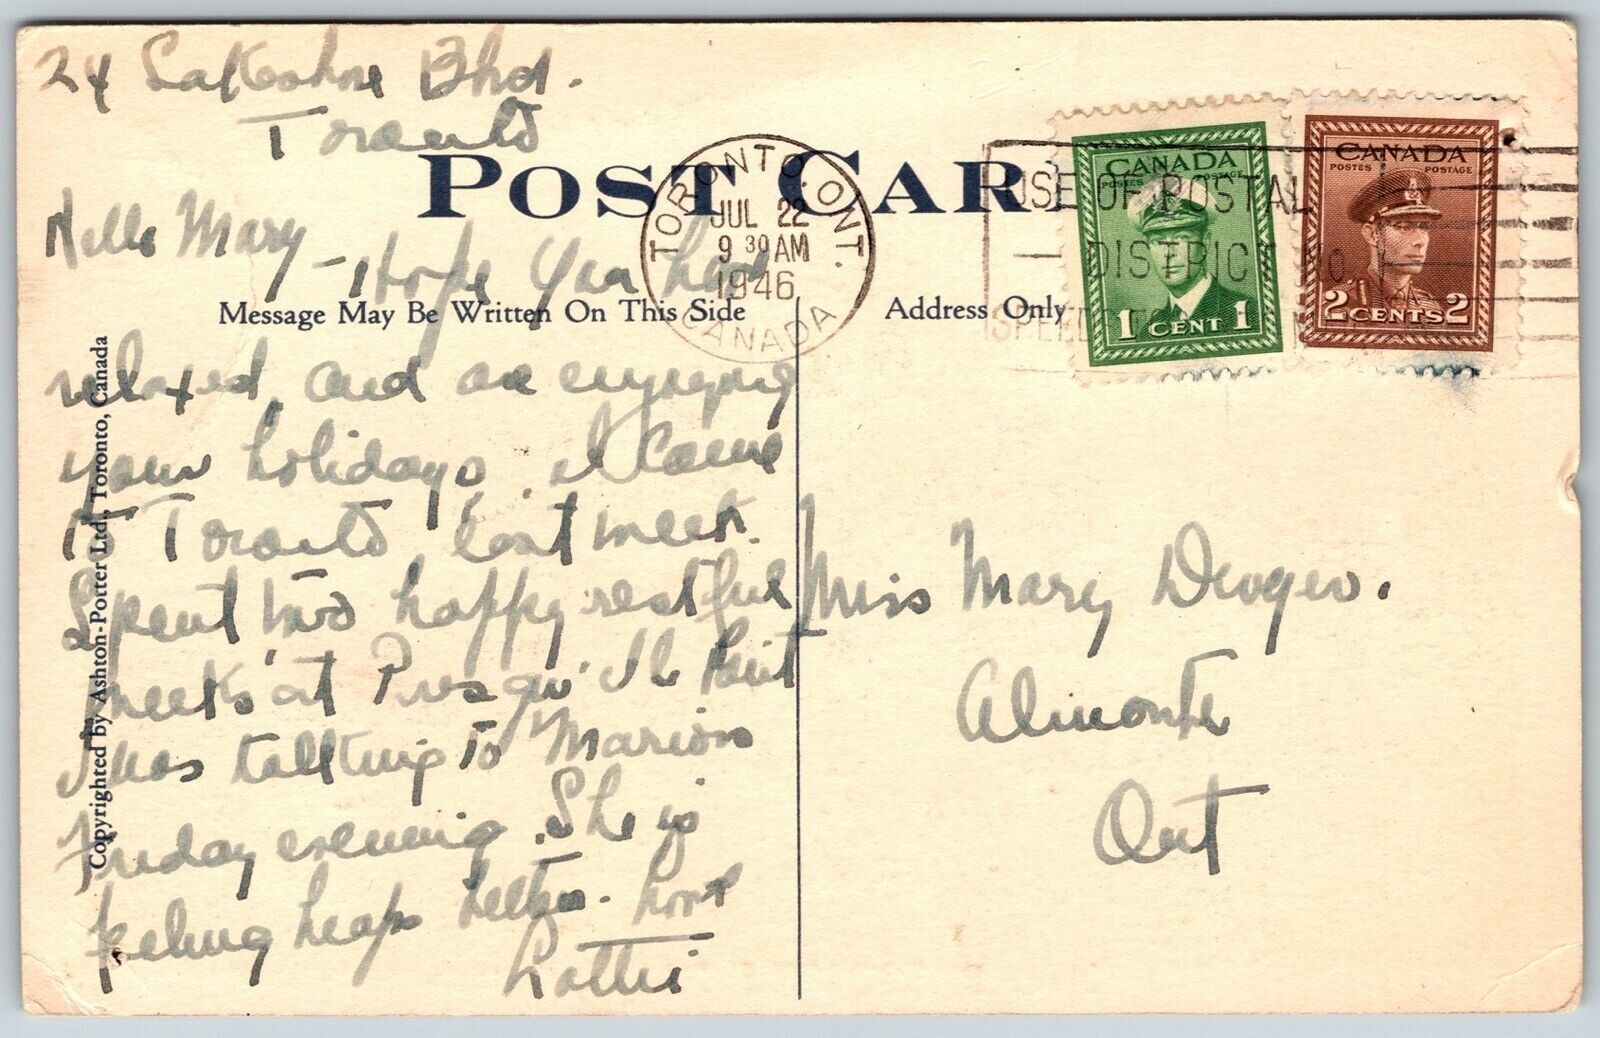 24 Lakeshore Blvd.
Toronto
POST CAR
Hello Mary
- Hope you have
Message May Be Written On This Side
Address Only
relaxed and are enjoying
your holidays. I came
to Toronto last week.
Spent two happy restful
weeks at Presqu' Ile Point
I was talking to Marion
Friday evening. She is
feeling heaps better. Love
Lottie
Copyrighted by Ashton-Potter Ltd., Toronto, Canada
TORONTO. ONT.
JUL 22
9 30 AM
1946
CANADA
USE OF POSTAL
DISTRICT No.
SPEED
CANADA
POSTES POSTAGE
1 CENT 1
CANADA
POSTES POSTAGE
2 CENTS 2
Miss Mary
Almonte
Ont